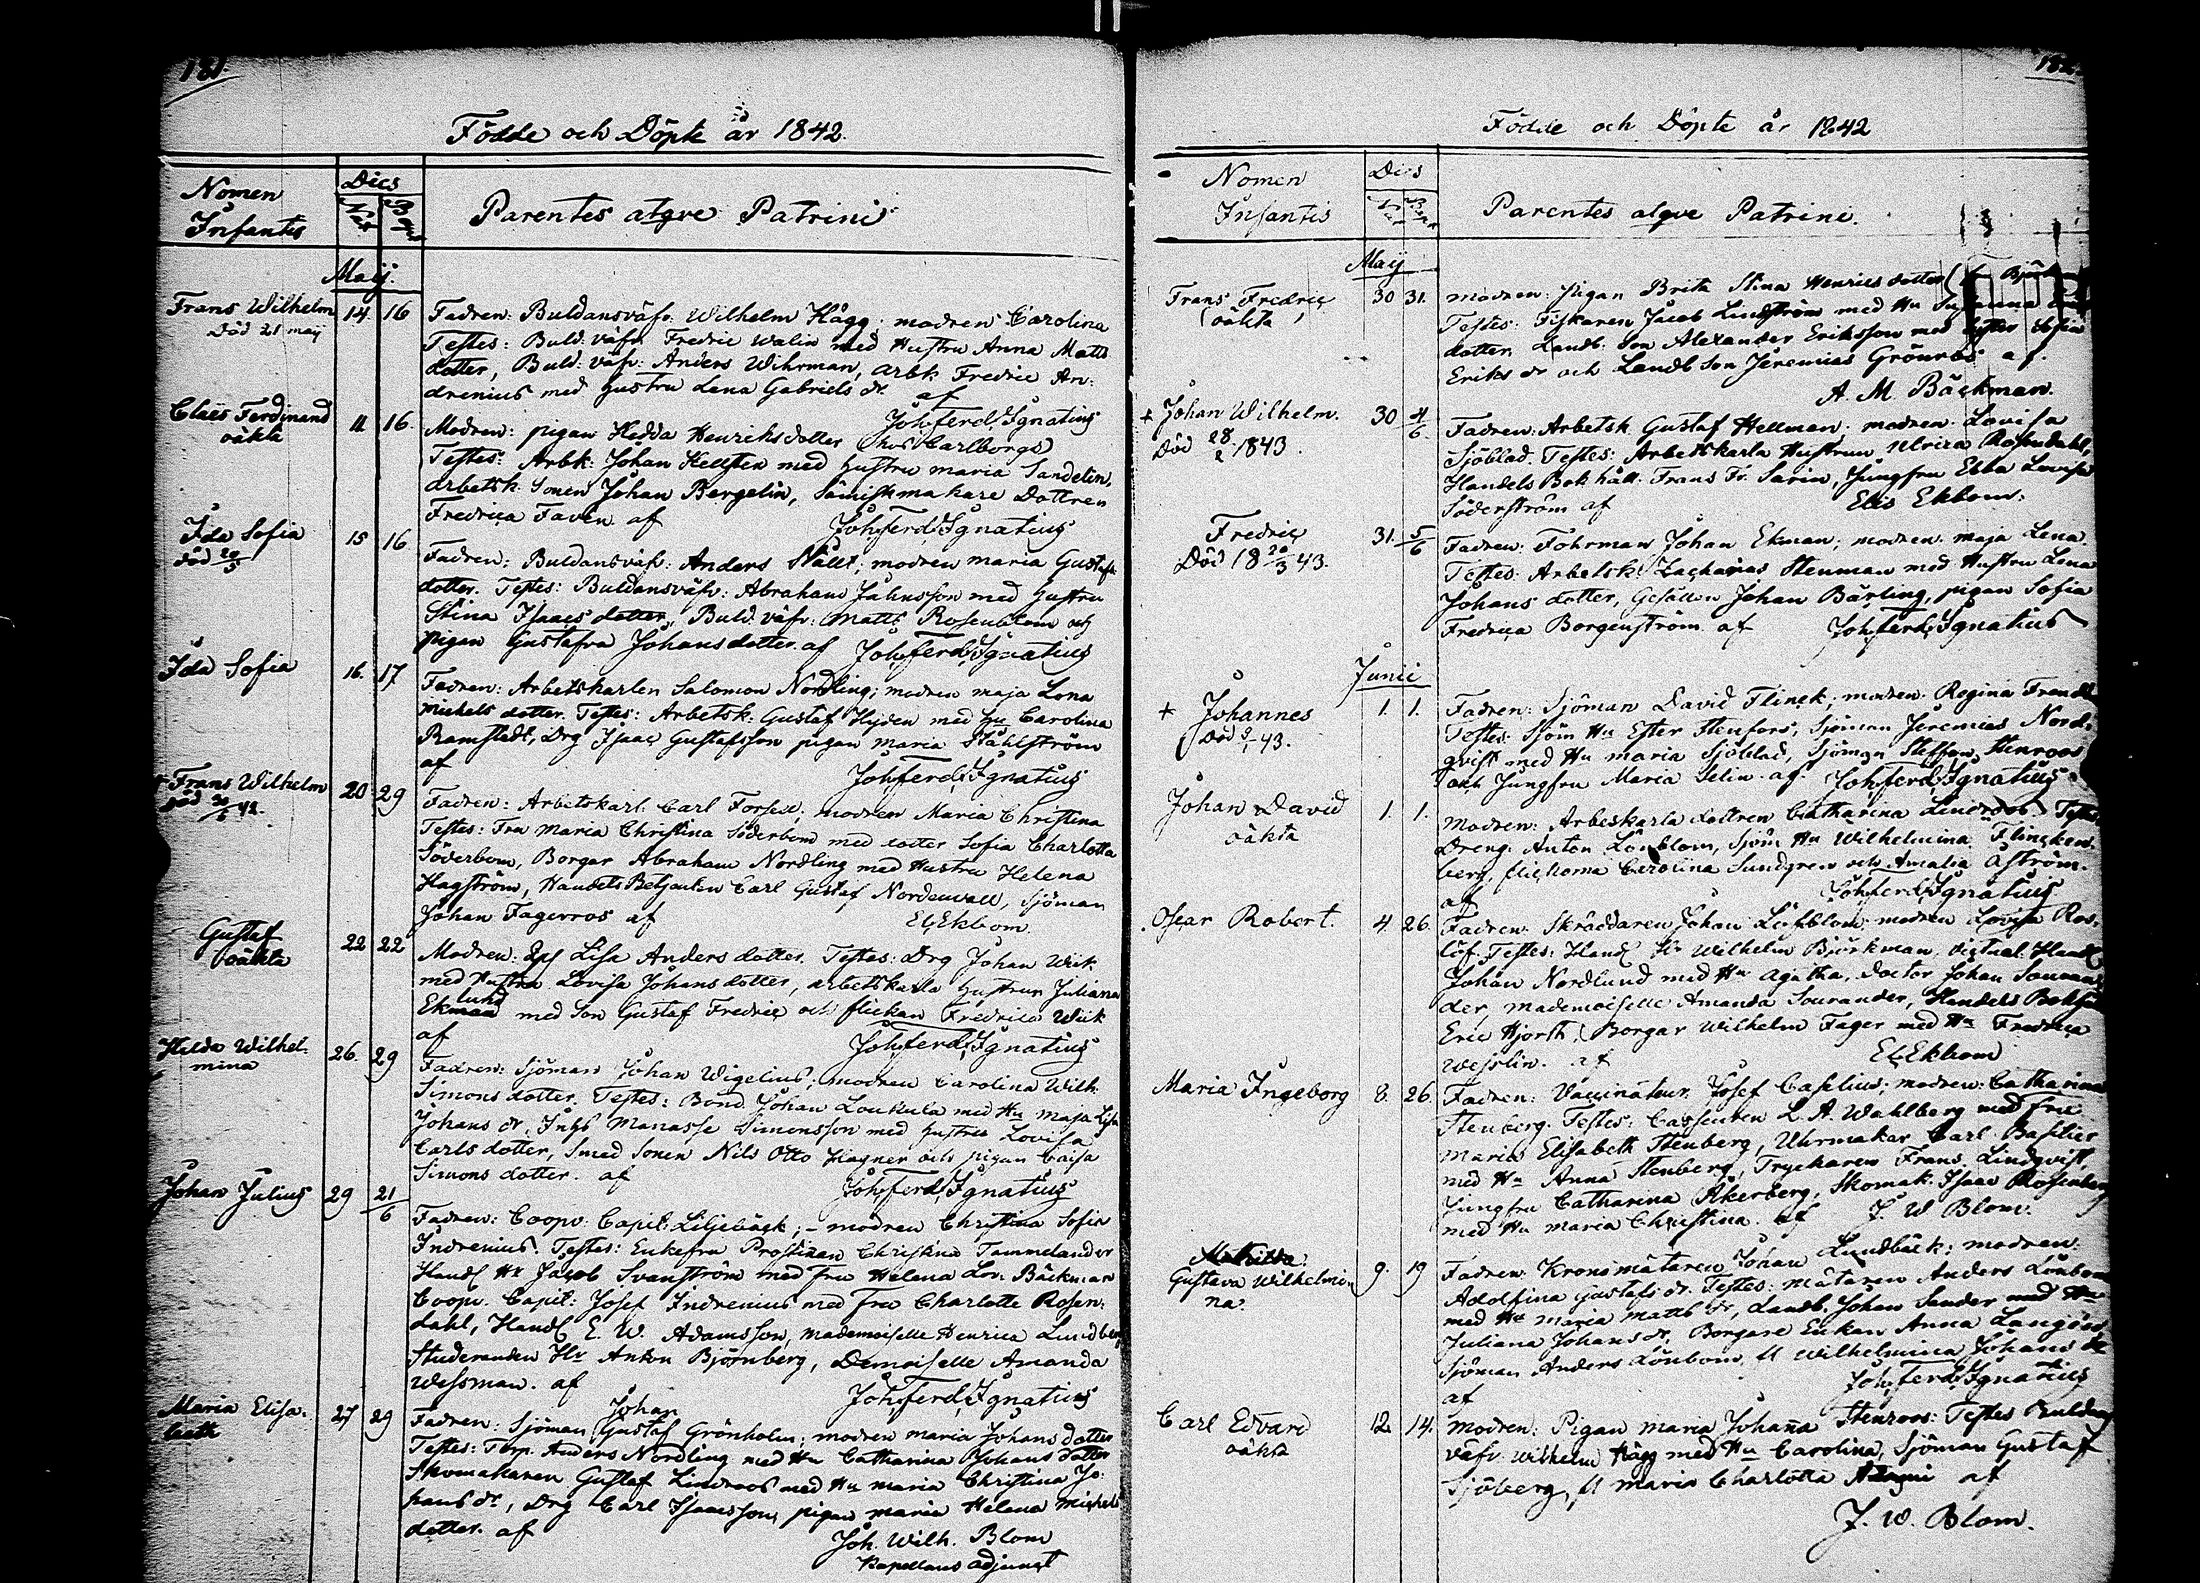 181.
Födde och Döpte år 1842.
Nomen
Infantis
Dies
Nat
Bapt
Parentes atqve Patrini
Maij.
Frans Wilhelm
Död 21 maij
14 16
Fadren: Buldansväfv: Wilhelm Hägg; modren Carolina
Testes: Buld: väfv: Fredric Walin med Hustru Anna Matts
dotter, Buld: väfv: Anders Wihrman, Arbk Fredric An:
drenius med hustru Lena Gabriels dr. af
Joh. Ferd. Ignatius
Claës Ferdinand
oäkta
11 16.
Modren: pigan Hedda Henriksdotter (hos Carlborgs)
Testes: Arbk: Johan Hellsten med hustru maria Sandelin,
arbetsk. Sonen Johan Bergelin, Sämiskmakare Dottren
Fredrica Favén af
Joh. Ferd. Ignatius
Ida Sofia
död 20/5
15 16
Fadren: Buldansväfv: Anders Näll; modren maria Gustafs
dotter. Testes: Buldansväfv: Abraham Jahnsson med hustru
Stina Isaacs dotter, Buld. väfv: Matts Rosenblom och
pigan Gustafva Johans dotter. af Joh. Ferd. Ignatius
Ida Sofia
16. 17
Fadren: Arbetskarlen Salomon Nordling; modren maja Lena
Michels dotter. Testes: Arbetsk: Gustaf Hejden med Hu Carolina
Ramstedt, Drg Isaac Gustafsson pigan maria Ståhlström
af
Joh. Ferd. Ignatius
+ Frans Wilhelm
död 20/6 42.
20 29
Fadren: Arbetskarl. Carl Forsell; modren Maria Christina
Testes: Fru Maria Christina Söderbom med dotter Sofia Charlotta
Söderbom, Borgar Abraham Nordling med Hustru Helena
Hagström, Handels Betjenten Carl Gustaf Nordenvall, Sjöman
Johan Fagerros af
El. Ekbom
Gustaf
oäkta
22 22
Modren: Lisa Anders dotter. Testes: Drg Johan Wiik
med Hustru Lovisa Johans dotter, arbetskarls hustrun Juliana
Eklund med Son Gustaf Fredric och flickan Fredrica Wiik
af
Joh. Ferd. Ignatius
Hilda Wilhel-
mina
26. 29
Fadren: Sjöman Johan Wigelius; modren Carolina Wilh.
Simons dotter. Testes: Bond. Johan Loukula med Hu Maja Lisa
Johans dr, Inhs Manasse Simonsson med hustru Lovisa
Carls dotter, Smed Sonen Nils Otto Hagner och pigan Caisa
Simons dotter. af
Joh. Ferd. Ignatius
Johan Julius
29 21/6
Fadren: Coopv. Capit: Liljebäck; - modren Christina Sofia
Indrenius. Testes: Enkefru Prostinnan Christina Tammelander
Handl Hr Jacob Svanström med Fru Helena Lov: Bäckman
Coopv. Capit: Josef Indrenius med Fru Charlotte Rosen:
dahl, Handl E. W. Adamsson, Mademoiselle Henrica Lundberg
Studeranden Hr Anton Björnberg, Demoiselle Amanda
Wessman. af
Joh. Ferd. Ignatius
Maria Elisa-
beth
27 29
Johan
Fadren: Sjöman Gustaf Grönholm; modren maria Johans dotter
Testes: Torp. Anders Nordling med Hu Catharina Johans dotter
Skomakaren Gustaf Lindroos med Hu maria Christina Jo-
hans dr, Drg Carl Isaacsson, pigan maria Helena michels
dotter. af
Joh. Wilh. Blom
Kapellans adjunct
182.
Födde och Döpte år 1842
Nomen
Infantis
Dies
Parentes atqve Patrini.
Maij
Frans Fredric
(oäkta)
30 31.
modren: Pigan Brita Stina Henrics dotter
Testes: Fiskaren Jacob Lindström med Hu Susanna
dotter Landb. Son Alexander Eriksson med syster Sofia
Eriks dr och Landb Son Jeremias Grönroos af.
A. M. Bäckman.
+ Johan Wilhelm.
Död 28/2 1843.
30 4/6
Fadren: Arbetsk Gustaf Hellman; modren Lovisa
Sjöblad. Testes: Arbetskarls Hustrun Ulrica Rosendahl,
Handels Bokhåll: Frans Fr. Sarin, Jungfru Ebba Lovisa
Söderström af
Elis Ekbom.
Fredric
Död 18 20/3 43.
31. 5/6
Fadren: Fohrman Johan Ekman; modren: maja Lena.
Testes: Arbetsk: Zacharias Stenman med Hustru Lena
Johans dotter, Gesällen Johan Bärling, pigan Sofia
Fredrica Borgenström. af Joh. Ferd. Ignatius
Junii
+ Johannes
Död 9/1 43.
1. 1.
Fadren: Sjöman David Flinck; modren: Regina
Testes: Sjöm Hu Ester Stenfors, Sjöman Jeremias Nord-
qvist med Hu maria Sjöblad, Sjöman Steffan Stenroos
och Jungfru Maria Selin. af Joh. Ferd. Ignatius
Johan David
oäkta
1. 1.
Modren: Arbeskarls dottren Catharina Lindroos. Testes:
Dreng. Anton Lönblom, Sjöm Hu Wilhelmina Flincken-
berg, flickorna Carolina Sundgren och Amalia Åström.
af
Joh. Ferd. Ignatius
Oscar Robert.
4. 26.
Fadren: Skräddaren Johan Löfblom; modren Lovisa Ros-
löf. Testes: Handl Hr Wilhelm Björkman, victual. Handl
Johan Nordlund med Hu Agatha, Doctor Johan Souran-
der, Mademoiselle Amanda Sourander, Handels Bokh
Eric Hjorth, Borgar Wilhelm Fager med Hu Fredrica
Wejslin. af
El. Ekbom
Maria Ingeborg
8. 26.
Fadren: Vaccinateur Josef Caselius; modren: Catharina
Stenberg. Testes: Casseuren L. A. Wahlberg med Fru
Maria Elisabeth Stenberg, Uhrmakar Carl Basilier
med Hu Anna Stenberg, Tryckaren Frans Lindqvist,
Jungfru Catharina Åkerberg, Skomak: Isaac Rosenberg
med Hu maria Christina. af J. W. Blom.
Matilda
Gustava Wilhelmi-
na.
9. 19
Fadren: Kronomätaren Johan Lundbäck; modren:
Adolfina Gustafs dr. Testes: mätaren Anders Lönbom
med Hu maria Matts dr, Landb. Johan Sander med Hu
Juliana Johans dr, Borgare Enkan Anna Langén
Sjöman Anders Lönbom, fl Wilhelmina Johans dr
af
Joh. Ferd. Ignatius
Carl Edvard
oäkta
12. 14.
Modren: Pigan maria Johanna Stenroos: Testes Buldans
väfv: Wilhelm Hägg med Hu Carolina, Sjöman Gustaf
Sjöberg, fl maria Charlotta af
J. W. Blom.